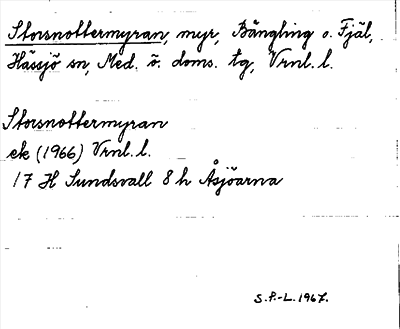 Storsnottermyran, myr, Bångling o. Fjäl,
Hässjö sn, Med. ö. doms. tg, Vrnl. l.
Storsnottermyran
ek (1966) Vrnl. l.
17 H Sundsvall 8 h Åsjöarna
S.P.-L. 1967.